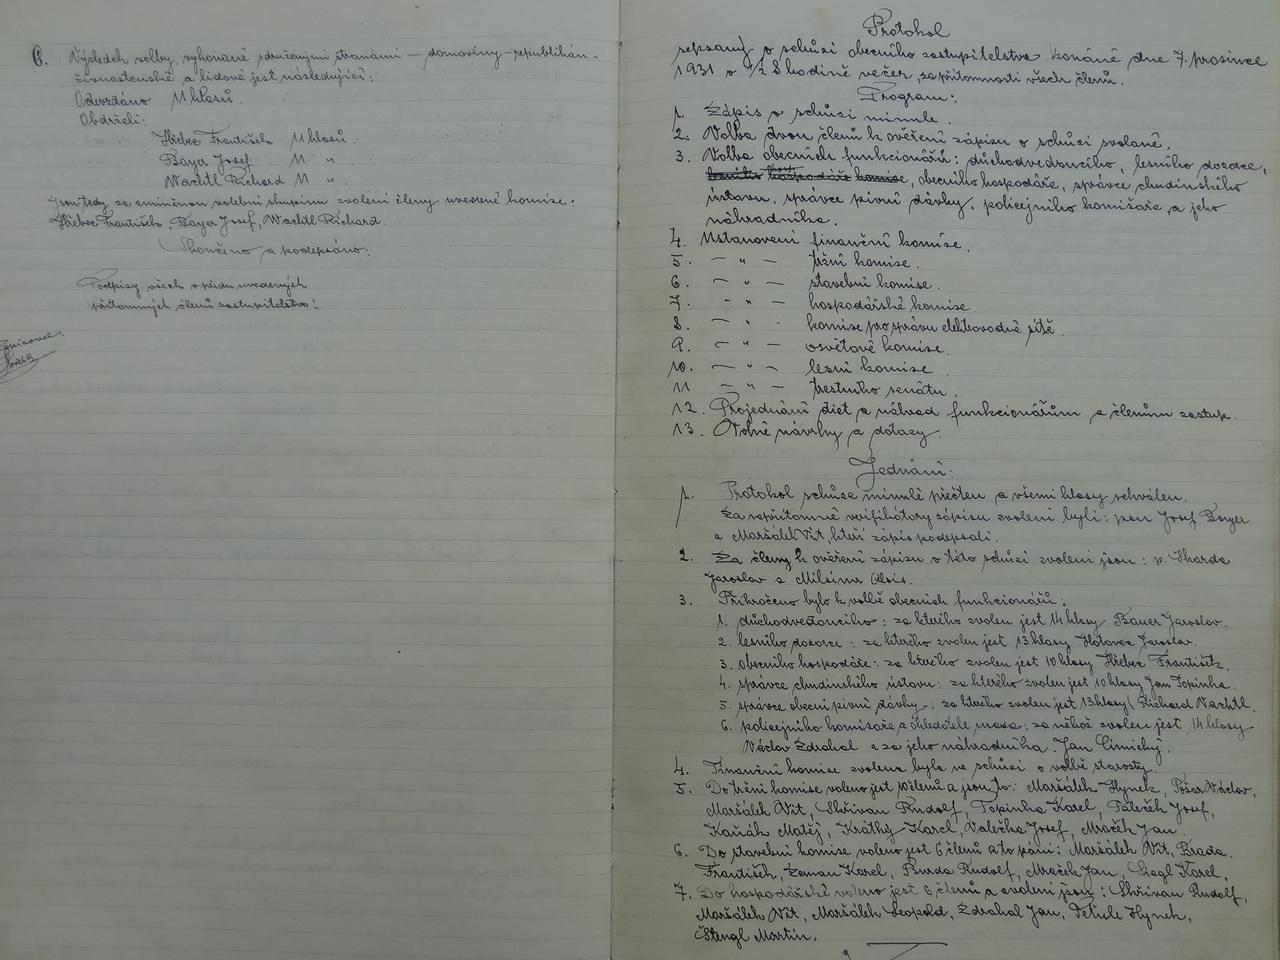 6. Výsledek volby, vykonané sdruženými stranámi — domoviny-republikán-
živnostenské a lidové jest následující:
Odevzdáno 11 hlasů.
Obdrželi:
Hřebec František 11 hlasů.
Bayer Josef 11 "
Wachtl Richard 11 "
Jsou tedy za volební skupinu zvoleni členy uvedené komise:
Hřebec František, Bayer Josef, Wachtl Richard.
Skončeno a podepsáno:
Podpisy všech v předu uvedených
přítomných členů zastupitelstva:
Protokol
sepsaný o schůzi obecního zastupitelstva konané dne 7. prosince
1931 o 1/2 8 hodině večer, za přítomnosti všech členů.
Program:
1. Zápis o schůzi minulé.
2. Volba dvou členů k ověření zápisu o schůzi svolané.
3. Volba obecních funkcionářů: důchodvedoucího, lesního dozorce,
obecního hospodáře, správce chudinského
ústavu, správce pivní dávky, policejního komisaře, a jeho
náhradníka.
4. Ustanovení finanční komise.
5. — " — tržní komise.
6. — " — stavební komise.
7. — " — hospodářské komise
8. — " — komise pro správu elektrovodné sítě.
9. — " — osvětové komise.
10. — " — lesní komise
11 — " — trestního senátu.
12. Projednání diet a náhrad funkcionářům a členům zastup.
13. Volné návrhy a dotazy.
Jednání:
1. Protokol schůze minulé přečten a všemi hlasy schválen.
Za nepřítomné verifikátory zápisu zvoleni byli: pan Josef Bayer
a Maršálek Vít, kteří zápis podepsali.
2. Za členy k ověření zápisu o této schůzi zvoleni jsou: p. Skarda
Jaroslav a Milsimr Alois.
3. Přikročeno bylo k volbě obecních funkcionářů:
1. důchodvedoucího: za kterého zvolen jest 14 hlasy Bauer Jaroslav.
2. lesního dozorce: za kterého zvolen jest 13 hlasy Hotovec Jaroslav.
3. obecního hospodáře: za kterého zvolen jest 10 hlasy Hřebec František.
4. správce chudinského ústavu: za kterého zvolen jest 10 hlasy Jan Topinka.
5. správce obecní pivní dávky: za kterého zvolen jest 13 hlasy Richard Wachtl.
6. policejního komisaře a ohledatele masa: za něhož zvolen jest 14 hlasy
Václav Zdrahal a za jeho náhradníka Jan Cimický.
4. Finanční komise zvolena byla ve schůzi o volbě starosty.
5. Do tržní komise voleno jest 10 členů a jsou to: Maršálek Hynek, Požár Václav,
Maršálek Vít, Skřivan Rudolf, Topinka Karel, Pateček Josef,
Kaňák Matěj, Krátký Karel, Valečka Josef, Mraček Jan.
6. Do stavební komise voleno jest 6 členů a to páni: Maršálek Vít, Brada
František, Zeman Karel, Burda Rudolf, Mraček Jan, Siegl Karel.
7. Do hospodářské voleno jest 6 členů a zvoleni jsou: Skřivan Rudolf,
Maršálek Vít, Maršálek Leopold, Zdrahal Jan, Petule Hynek,
Štengl Martin.